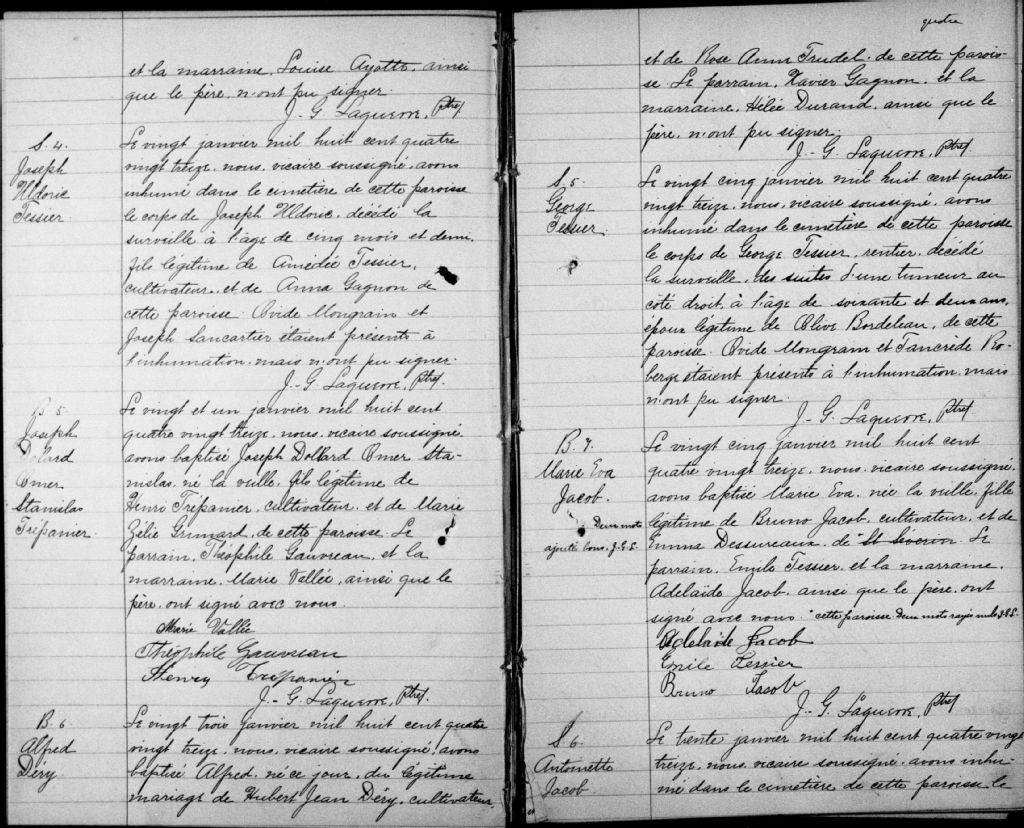 et la marraine, Louise Ayotte, ainsi
que le père, n'ont pu signer.
J.-G. Laquerre, Ptre
S. 4.
Joseph
Uldoric
Tessier.
Le vingt janvier mil huit cent quatre
vingt treize, nous, vicaire soussigné, avons
inhumé dans le cimetière de cette paroisse
le corps de Joseph Uldoric, décédé la
surveille à l'âge de cinq mois et demi,
fils légitime de Amédée Tessier,
cultivateur, et de Anna Gagnon de
cette paroisse. Ovide Mongrain et
Joseph Lancartier étaient présents à
l'inhumation, mais n'ont pu signer.
J.-G. Laquerre, Ptre
B. 5.
Joseph
Dolard
Omer
Stanislas
Trépanier.
Le vingt et un janvier mil huit cent
quatre vingt treize, nous, vicaire soussigné,
avons baptisé Joseph Dollard Omer Sta-
nislas, né la veille, fils légitime de
Henri Trépanier, cultivateur, et de Marie
Zélie Grimard, de cette paroisse. Le
parrain, Théophile Gauvreau, et la
marraine, Marie Vallée, ainsi que le
père, ont signé avec nous.
Marie Vallée
Théophile Gauvreau
Henry Trépanier
J.-G. Laquerre, Ptre
B. 6
Alfred
Déry
Le vingt trois janvier mil huit cent quatre
vingt treize, nous, vicaire soussigné, avons
baptisé Alfred, né ce jour, du légitime
mariage de Hubert Jean Déry, cultivateur,
quatre
et de Rose Anna Trudel, de cette parois-
se. Le parrain, Xavier Gagnon, et la
marraine, Hélée Durand, ainsi que le
père, n'ont pu signer.
J.-G. Laquerre, Ptre
S. 5
George
Tessier.
Le vingt cinq janvier mil huit cent quatre
vingt treize, nous, vicaire soussigné, avons
inhumé dans le cimetière de cette paroisse
le corps de George Tessier, rentier, décédé
la surveille, des suites d'une tumeur au
côté droit, à l'âge de soixante et deux ans,
époux légitime de Olive Bordeleau, de cette
paroisse. Ovide Mongrain et Tancrède Ro-
berge étaient présents à l'inhumation mais
n'ont pu signer.
J.-G. Laquerre, Ptre
B. 7
Marie Eva
Jacob.
Deux mots
ajouté bons, J.G.L.
Le vingt cinq janvier mil huit cent
quatre vingt treize, nous, vicaire soussigné,
avons baptisé Marie Eva, née la veille, fille
légitime de Bruno Jacob, cultivateur, et de
Emma Dessureaux, de St Séverin. Le
parrain, Emile Tessier, et la marraine,
Adelaïde Jacob, ainsi que le père, ont
signé avec nous. cette paroisse Deux mots rayés nuls J.G.L.
Adelaide Jacob
Emile Tessier
Bruno Jacob
J.-G. Laquerre, Ptre
S. 6
Antoinette
Jacob
Le trente janvier mil huit cent quatre vingt
treize, nous, vicaire soussigné, avons inhu-
mé dans le cimetière de cette paroisse le